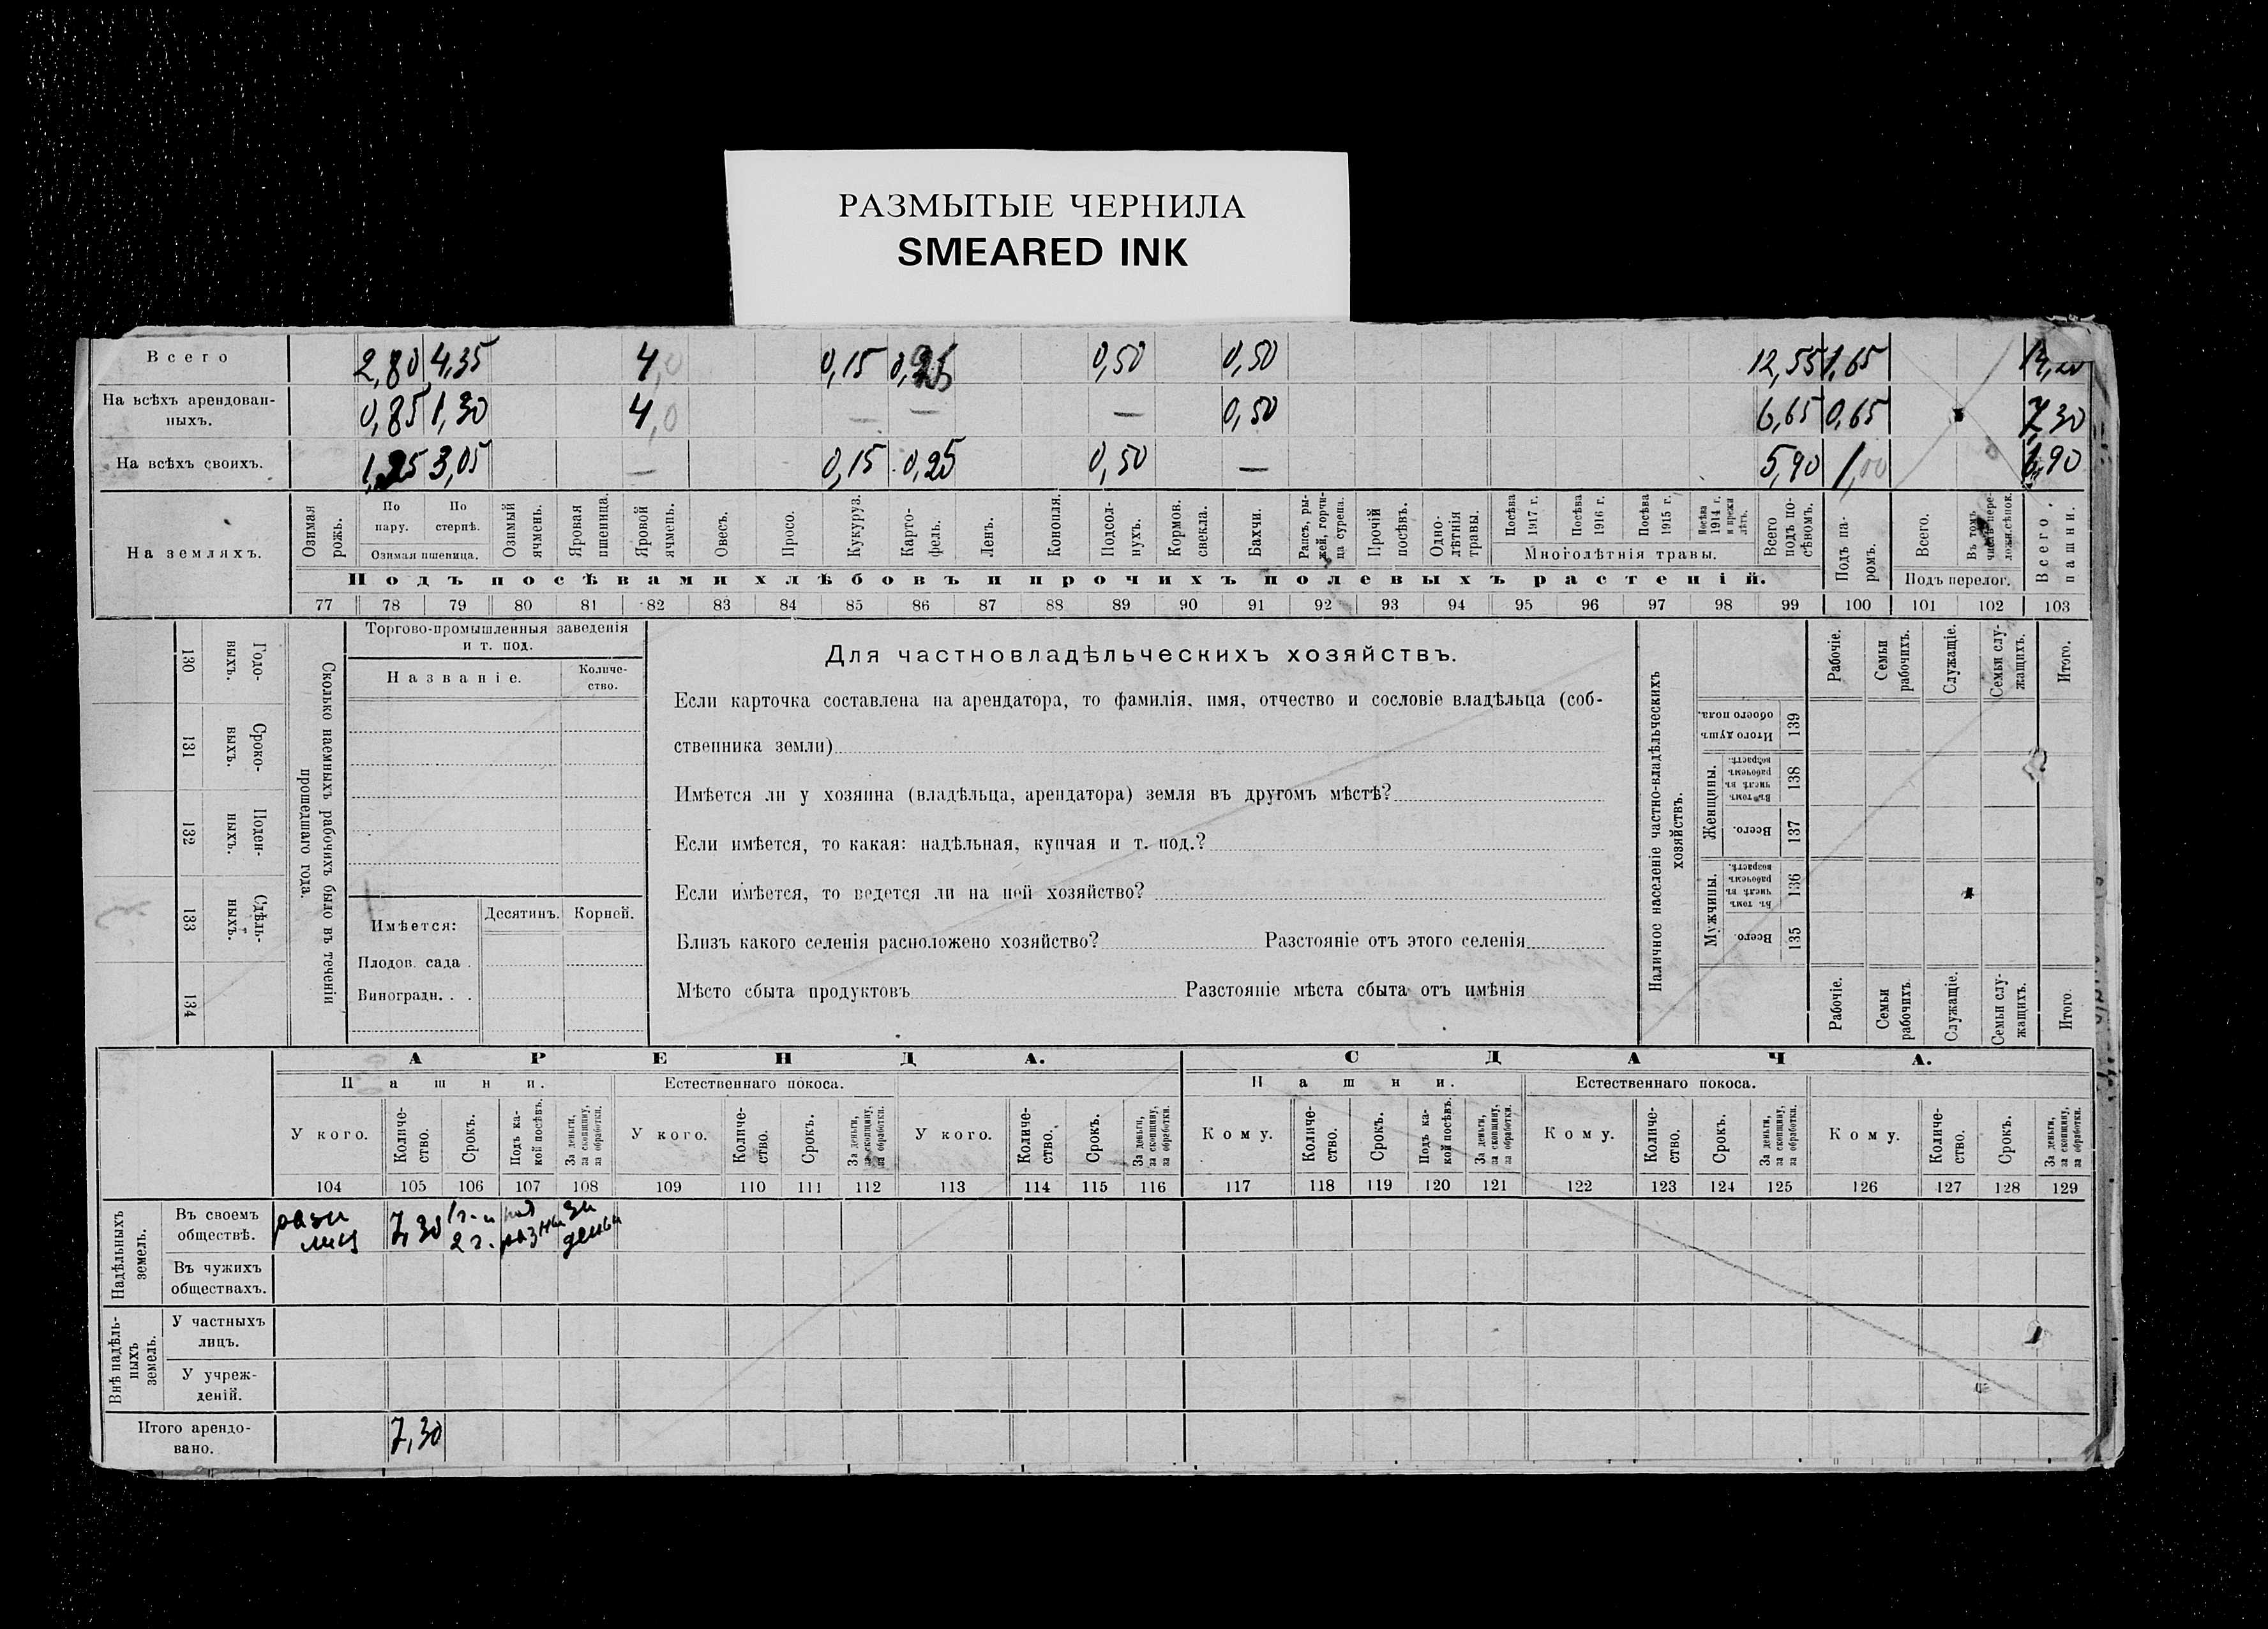 РАЗМЫТЫЕ ЧЕРНИЛА
SMEARED INK
Всего 2,80 4,35 4,0 0,15 0,25 0,50 0,50 12,55 1,65 14,20
На всѣхъ арендован-
ныхъ. 0,85 1,30 4,0 — — — 0,50 6,65 0,65 7,30
На всѣхъ своихъ. 3,05 — 0,15 0,25 0,50 — 5,90 1,00 6,90
На земляхъ.
Озимая рожь.
По пару.
По стернѣ.
Озимая пшеница.
Озимый ячмень.
Яровая пшеница.
Яровой ячмень.
Овесъ.
Просо.
Кукуруз.
Карто-
фель.
Ленъ.
Конопля.
Подсол-
нухъ.
Кормов. свекла.
Бахчи.
Рапсъ, ры-
жей, горчи-
ца сурепа.
Прочій посѣвъ.
Одно-
лѣтнія травы.
Посѣва 1917 г.
Посѣва 1916 г.
Посѣва 1915 г.
Посѣва 1914 г. и прежн лѣтъ.
Многолѣтнія травы.
Всего подъ по-
сѣвомъ.
Подъ па-
ромъ.
Всего.
Въ томъ числѣ пере-
Подъ перелог.
Всего пашни.
Подъ посѣвами хлѣбовъ и прочихъ полевыхъ растеній.
77 78 79 80 81 82 83 84 85 86 87 88 89 90 91 92 93 94 95 96 97 98 99 100 101 102 103
130 Годо-
ныхъ.
131 Сроко-
ныхъ.
132 Поден-
ныхъ.
133 Сдѣль-
ныхъ.
134
Сколько наемныхъ рабочихъ было въ теченіи
прошедшаго года.
Торгово-промышленныя заведенія
и т. под.
Названіе.
Количе-
ство.
Имѣется:
Десятинъ. Корней.
Плодов. сада .
Виноградн. . .
Для частновладѣльческихъ хозяйствъ.
Если карточка составлена на арендатора, то фамилія, имя, отчество и сословіе владѣльца (соб-
ственника земли)
Имѣется ли у хозяина (владѣльца, арендатора) земля въ другомъ мѣстѣ?
Если имѣется, то какая: надѣльная, купчая и т. под.?
Если имѣется, то ведется ли на ней хозяйство?
Близъ какого селенія расположено хозяйство? Разстояніе отъ этого селенія
Мѣсто сбыта продуктовъ Разстояніе мѣста сбыта отъ имѣнія
Наличное населеніе частно-владѣльческихъ
хозяйствъ.
Рабочіе.
Семьи рабочихъ.
Служащіе.
Семьи слу-
жащихъ.
Итого.
Итого душъ обоего пола. 139
Женщины.
Въ томъ числѣ въ рабочемъ возрастѣ. 138
Всего. 137
Мужчины.
Въ томъ числѣ въ рабочемъ возрастѣ. 136
Всего. 135
Рабочіе.
Семьи рабочихъ.
Служащіе.
Семьи слу-
жащихъ.
Итого
АРЕНДА. СДАЧА.
Пашни. Естественнаго покоса. Пашни. Естественнаго покоса.
У кого.
Количе-
ство.
Срокъ.
Подъ ка-
кой посѣвъ.
За деньги, за скопщину, за обработки.
У кого.
Количе-
ство.
Срокъ.
За деньги, за скопщину, за обработки.
У кого.
Количе-
ство.
Срокъ.
За деньги, за скопщину, за обработки.
Кому.
Количе-
ство.
Срокъ.
Подъ ка-
кой посѣвъ.
За деньги, за скопщину, за обработки.
Кому.
Количе-
ство.
Срокъ.
За деньги, за скопщину, за обработки.
Кому.
Количе-
ство.
Срокъ.
За деньги, за скопщину, за обработки.
104 105 106 107 108 109 110 111 112 113 114 115 116 117 118 119 120 121 122 123 124 125 126 127 128 129
Надѣльныхъ земель.
Въ своемъ
обществѣ. 7,30
Въ чужихъ
обществахъ.
Внѣ надѣль-
ныхъ
земель.
У частныхъ
лицъ.
У учреж-
деній.
Итого арендо-
вано. 7,30